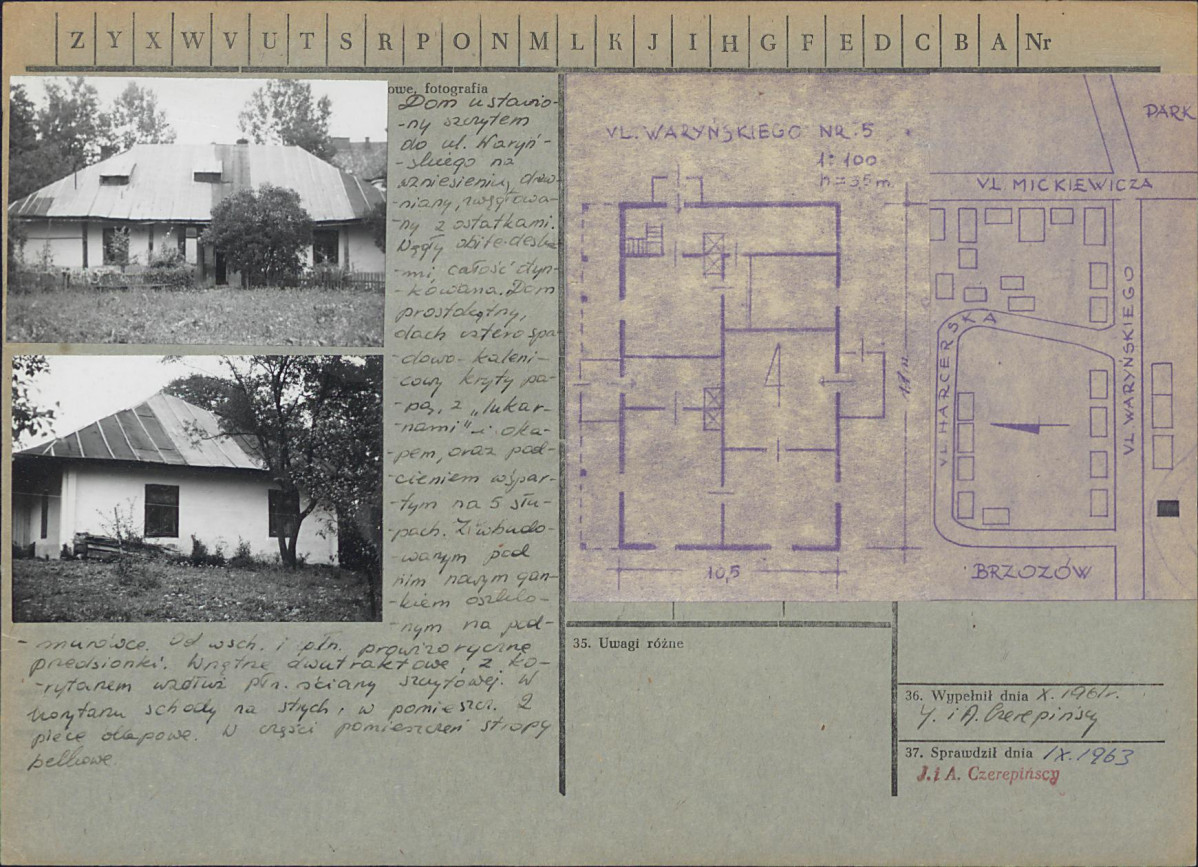 Z Y X W V U T S R P O N M L K J I H G F E D C B A Nr
owe, fotografia
Dom ustawio-
-ny szczytem
do ul. Waryń-
-skiego na
wzniesieniu, drew-
-niany, zwęgrowa-
ny z ostatkami.
Węgły obite deska-
-mi, całość tyn-
-kowana. Dom
prostokątny,
dach cztero spa-
dowo-kaleni-
cowy kryty pa-
-pą, z „lukar-
-nami" i oka-
pem, oraz pod-
-cieniem wspar-
-tym na 5 słu-
-pach. Z wbudo-
-wanym pod
nim nowym gan-
-kiem oszklo-
-nym na pod-
-murówce. Od wsch. i płn. prowizoryczne
przedsionki. Wnętrze dwutraktowe, z ko-
-rytarzem wzdłuż płn. ściany szczytowej. W
korytarzu schody na strych, w pomieszcz. 2
piece okapowe. W części pomieszczeń stropy
belkowe.
UL. WARYŃSKIEGO NR. 5
1:100
h=3,5 m.
10,5
PARK
UL. MICKIEWICZA
UL. HARCERSKA
UL. WARYŃSKIEGO
BRZOZÓW
35. Uwagi różne
36. Wypełnił dnia X. 1961r.
J. i A. Czerepińscy
37. Sprawdził dnia IX. 1963
J. i A. Czerepińscy